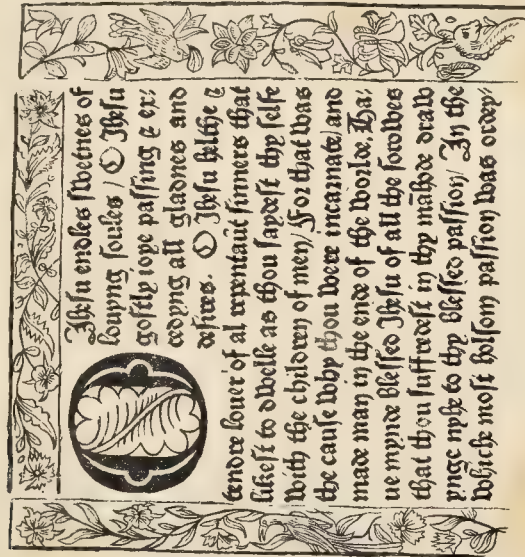 O Ihesu endles swetnes of
louyng soules / O Ihesu
gostly ioye passing & ex-
cedyng all gladnes and
desires. O Ihesu helthe &
tendre louer of al repentaut sinners that
likest to dwelle as thou saydest thy selfe
with the children of men / For that was
the cause why thou were incarnate / and
made man in the ende of the worlde. Ha-
ue mynde blessed Ihesu of all the sorowes
that thou suffredest in thy māhode draw
ynge nyhe to thy blessed passion / In the
whiche most holsom passion was ordey-